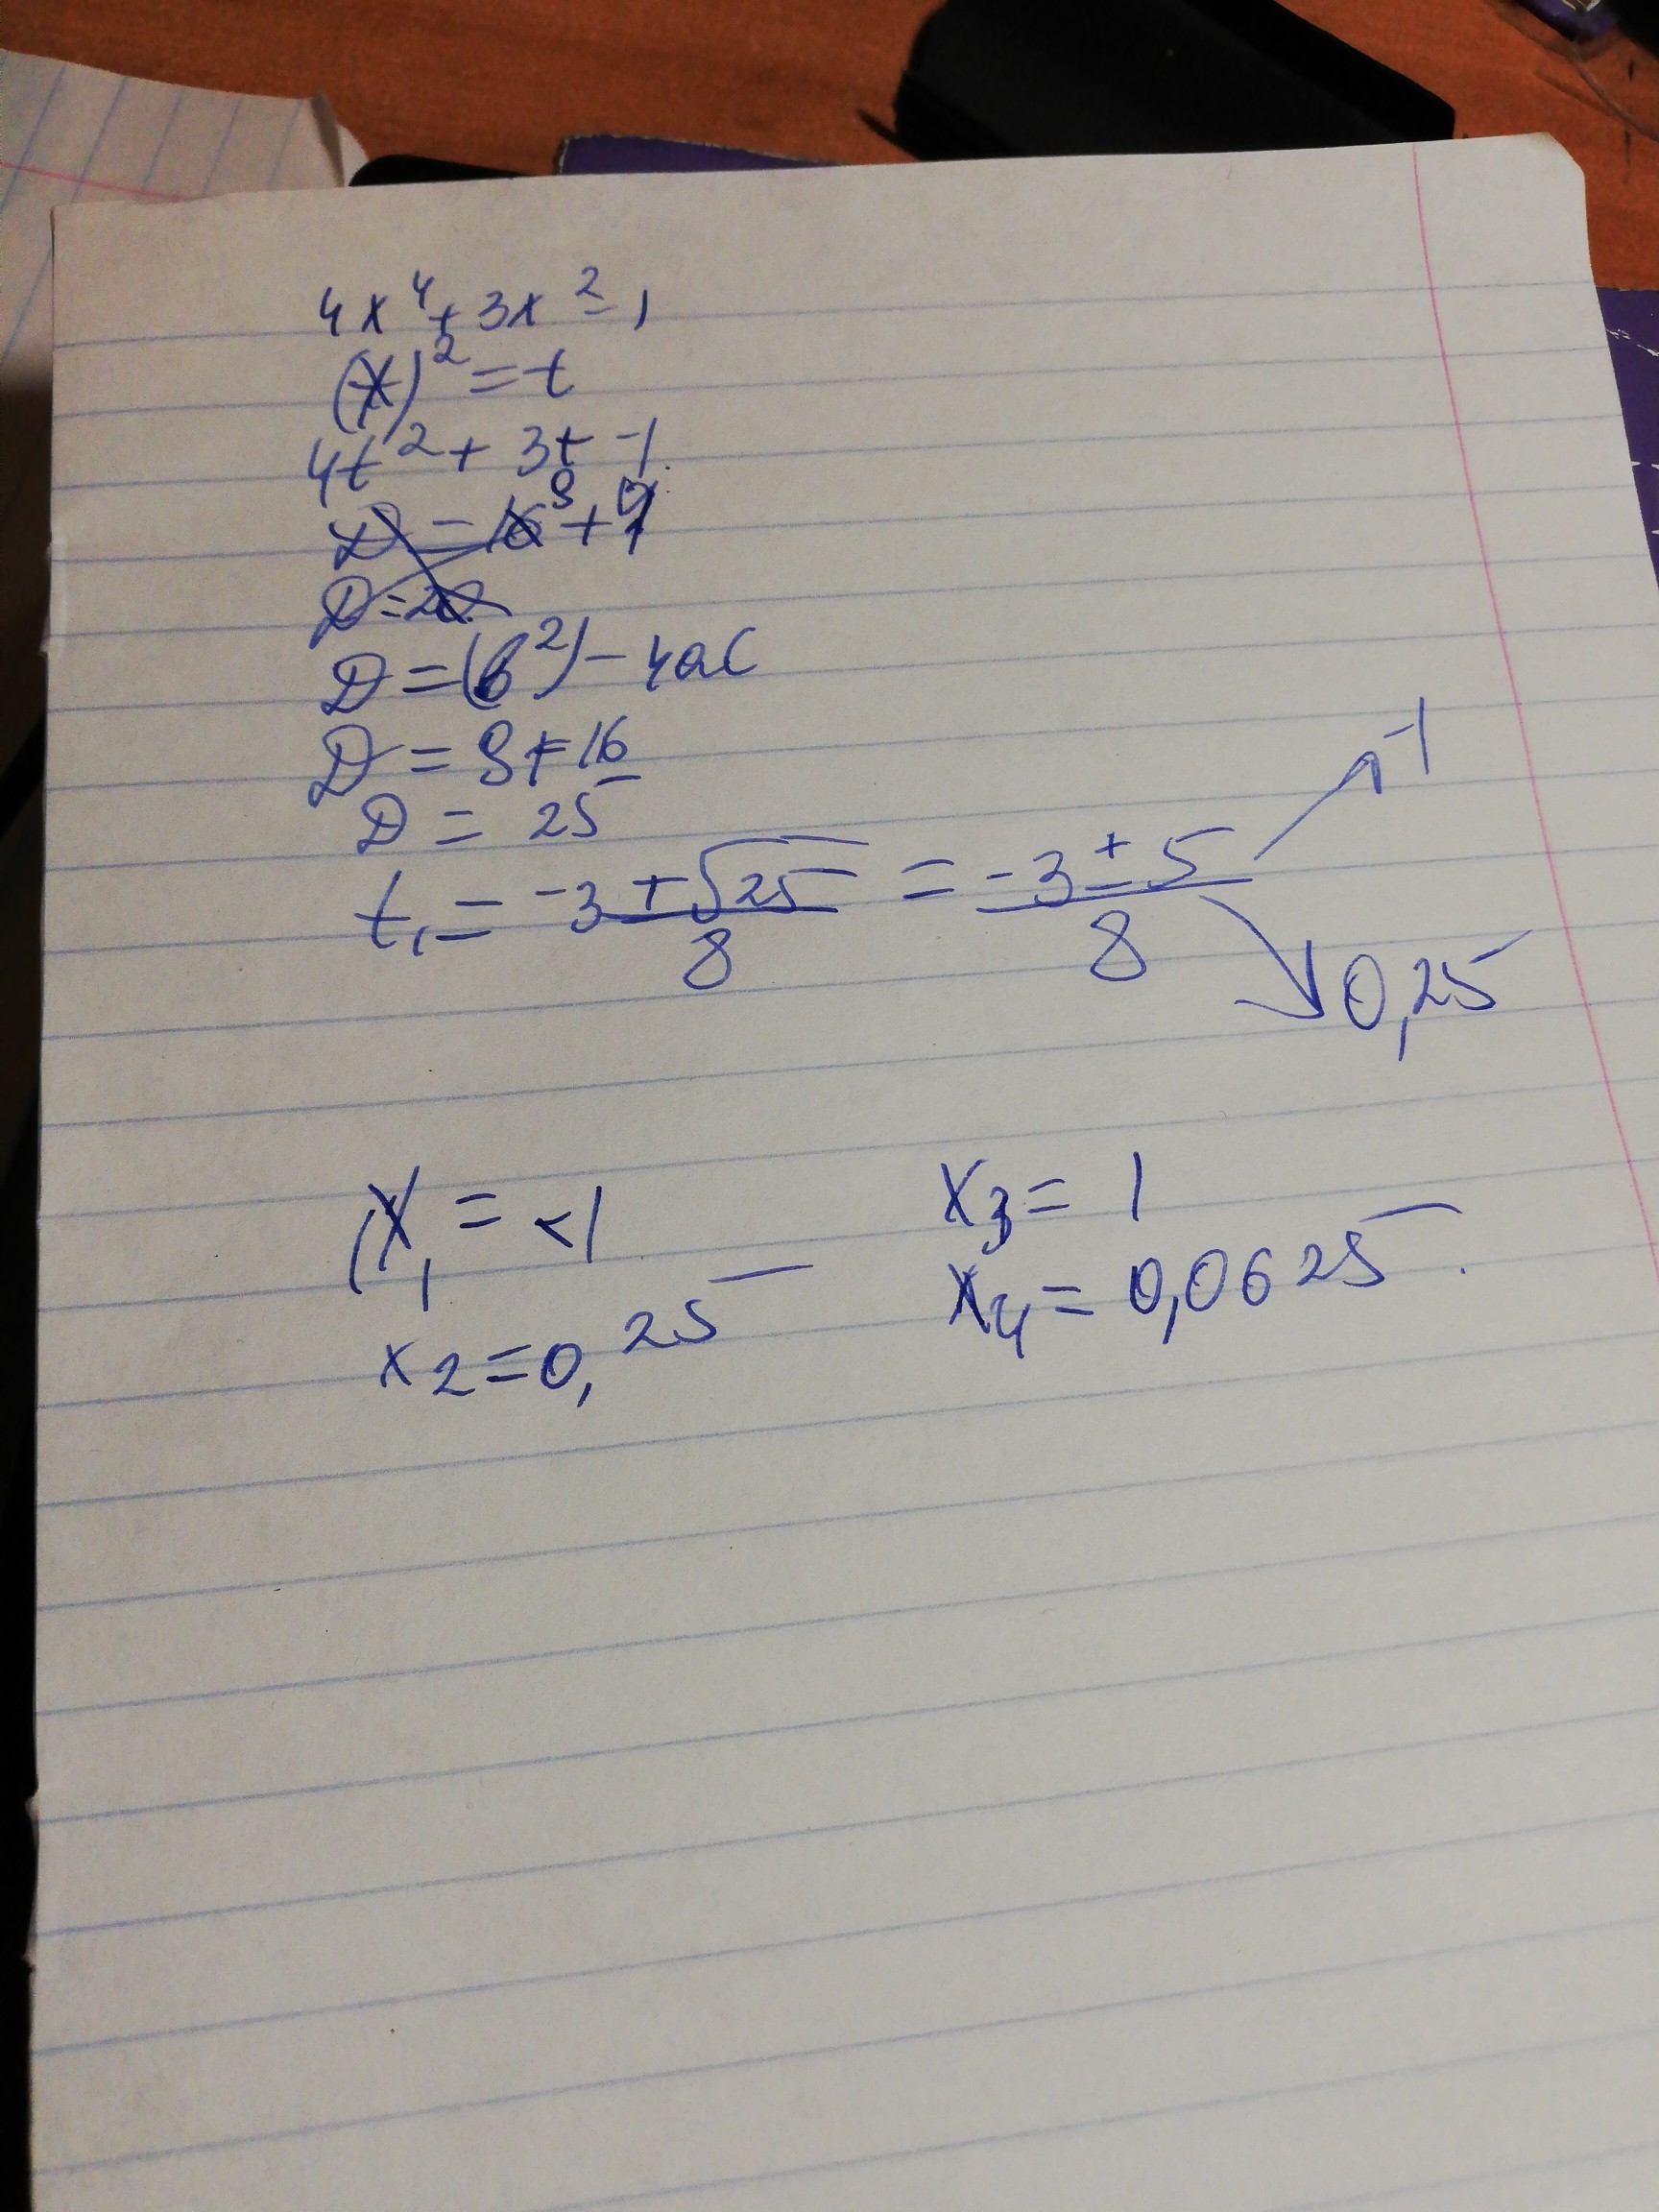 4x⁴+3x²-1
(x)²=t
4t²+3t-1
D=9+7
D=20
D=(b²)-4ac
D=9+16
D=25
t₁=(-3±√25)/8=(-3±5)/8 -1
0,25
x₁=-1 x₃=1
x₂=0,25 x₄=0,0625.